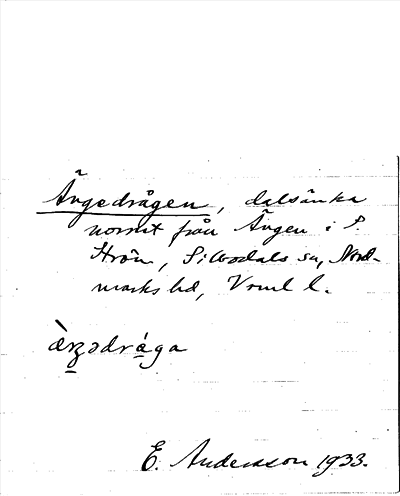 Ängedrågen, dalsänka
norrut från Ängen i S.
Strön, Silbodals sn, Nord-
marks hd, Vrml l.
E. Andersson 1933.